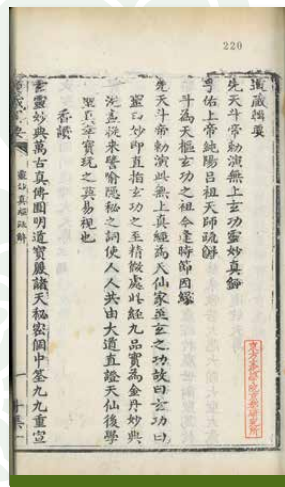 220
道藏輯要
先天斗帝勅演無上玄功靈妙真經
孚佑上帝純陽呂祖天師疏解
斗為天樞玄功之祖今逢時節因緣
先天斗帝勅演此無上真經為天仙家造玄之功故曰玄功曰
靈曰妙即直指玄功之至精微處此經九品實為金丹妙典
洗盡從來譬喻隱秘之詞使人人共由大道直證天仙後學
幸寶玩之莫易視也
香讚
玄靈妙典萬古真傳圓明道寶嚴諸天秘密個中筌九九重宣
靈妙真經疏解
一